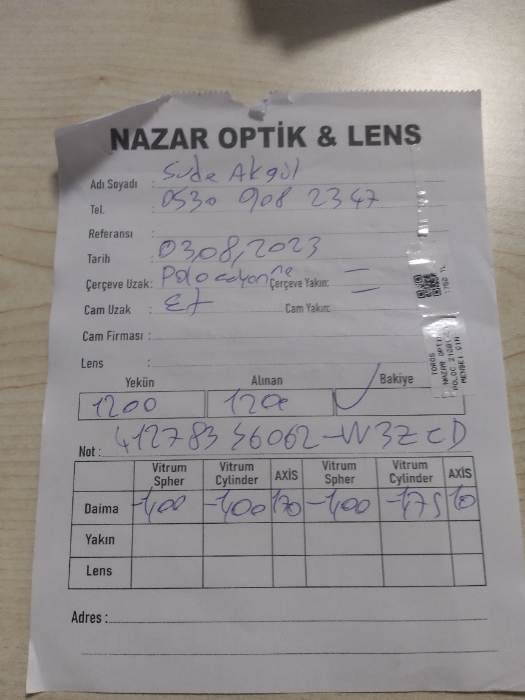 NAZAR OPTİK & LENS
Adı Soyadı : Sude Akgül
Tel. : 0530 908 2347
Referansı :
Tarih : 03.08.2023
Çerçeve Uzak: Polo Çerçeve Yakın:
Cam Uzak : Cam Yakın:
Cam Firması :
Lens :
Yekün Alınan Bakiye
1200 1200
Not : 41278356062-W3ZCD
Vitrum Spher Vitrum Cylinder AXİS Vitrum Spher Vitrum Cylinder AXİS
Daima -1,00 -1,00 170 -1,00 -1,75 10
Yakın
Lens
Adres :
TOROS
NAZAR OPTİ